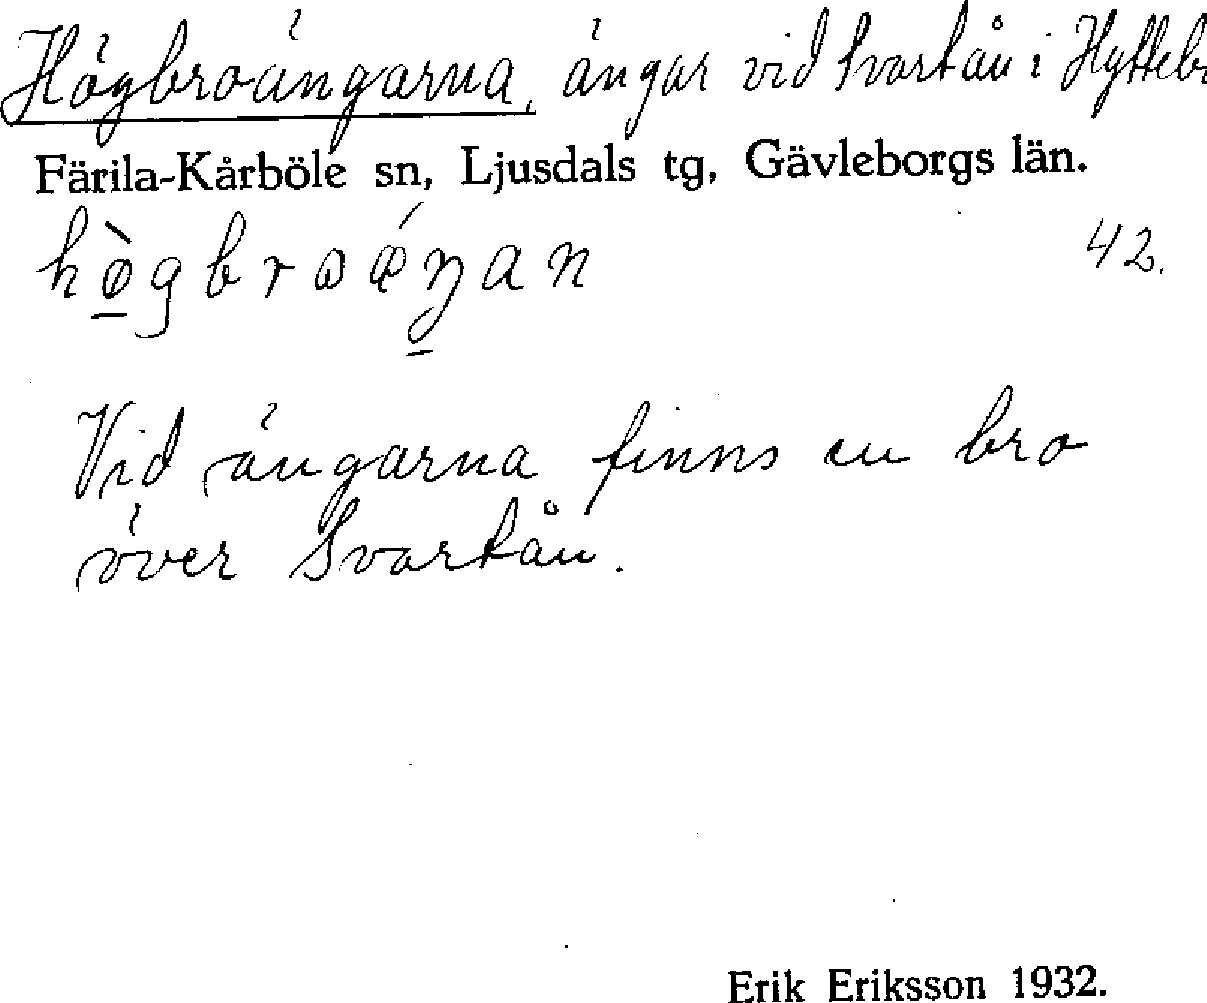 Högbroängarna, ängar vid Svartån i Hyttebr
Färila-Kårböle sn, Ljusdals tg, Gävleborgs län.
hø̀gbrɷǽŋan 42.
Vid ängarna finns en bro
över Svartån.
Erik Eriksson 1932.